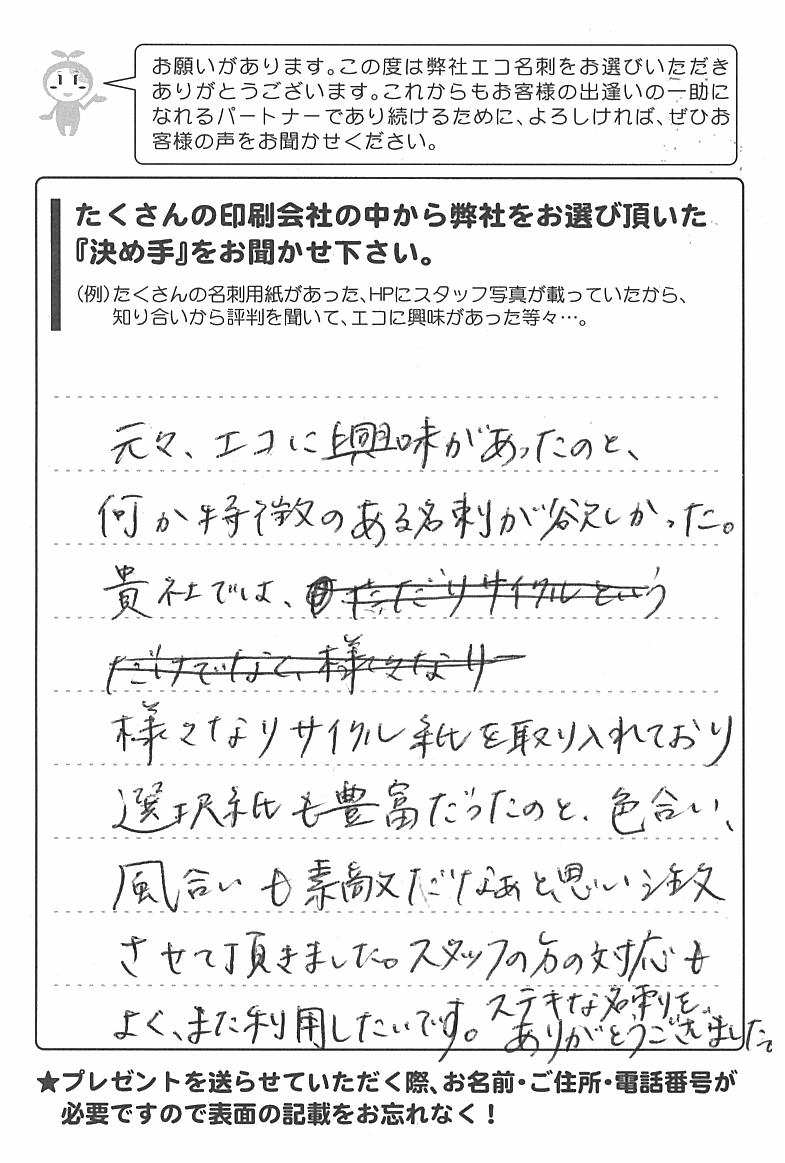 お願いがあります。この度は弊社エコ名刺をお選びいただき
ありがとうございます。これからもお客様の出逢いの一助に
なれるパートナーであり続けるために、よろしければ、ぜひお
客様の声をお聞かせください。
たくさんの印刷会社の中から弊社をお選び頂いた
『決め手』をお聞かせ下さい。
(例)たくさんの名刺用紙があった、HPにスタッフ写真が載っていたから、
知り合いから評判を聞いて、エコに興味があった等々…。
元々、エコに興味があったのと、
何か特徴のある名刺が欲しかった。
貴社では、ただリサイクルという
だけでなく、様々なリ
様々なリサイクル紙を取り入れており
選択紙も豊富だったのと、色合い、
風合いも素敵だなあと思い注文
させて頂きました。スタッフの方の対応も
よく、また利用したいです。ステキな名刺を、
ありがとうございました。
★プレゼントを送らせていただく際、お名前・ご住所・電話番号が
必要ですので表面の記載をお忘れなく!